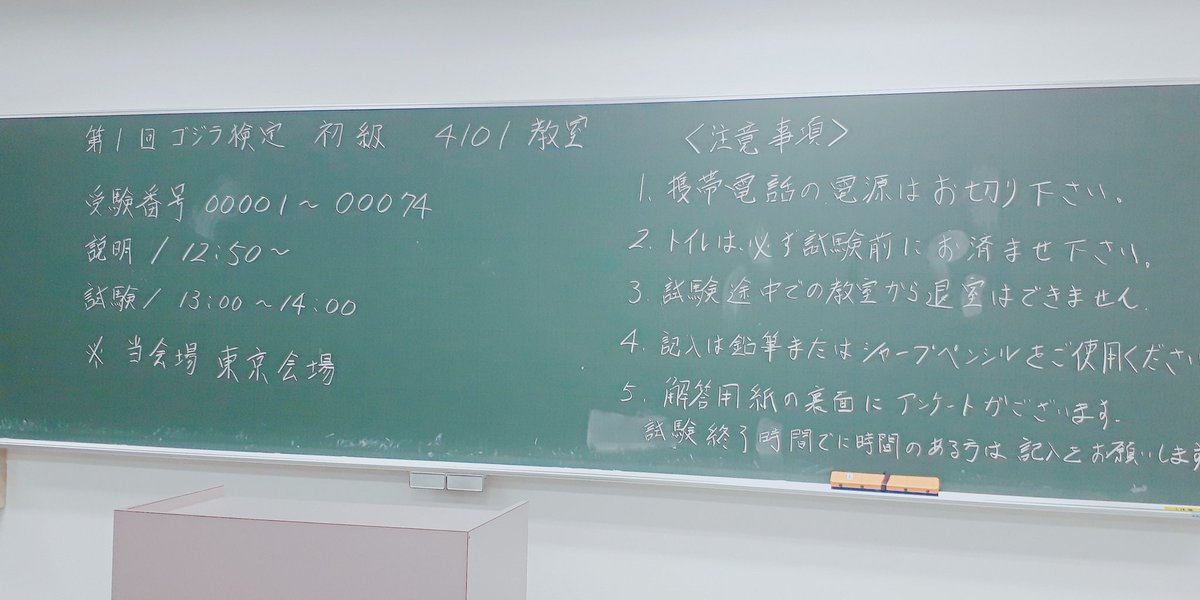 第1回ゴジラ検定 初級 4101教室
受験番号 00001～00074
説明 / 12:50～
試験 / 13:00～14:00
※ 当会場 東京会場
＜注意事項＞
1. 携帯電話の電源はお切り下さい。
2. トイレは、必ず試験前にお済ませ下さい。
3. 試験途中での教室から退室はできません.
4. 記入は鉛筆またはシャープペンシルをご使用くださ
5. 解答用紙の裏面にアンケートがございます.
試験終了時間でに時間のある方は記入をお願いします